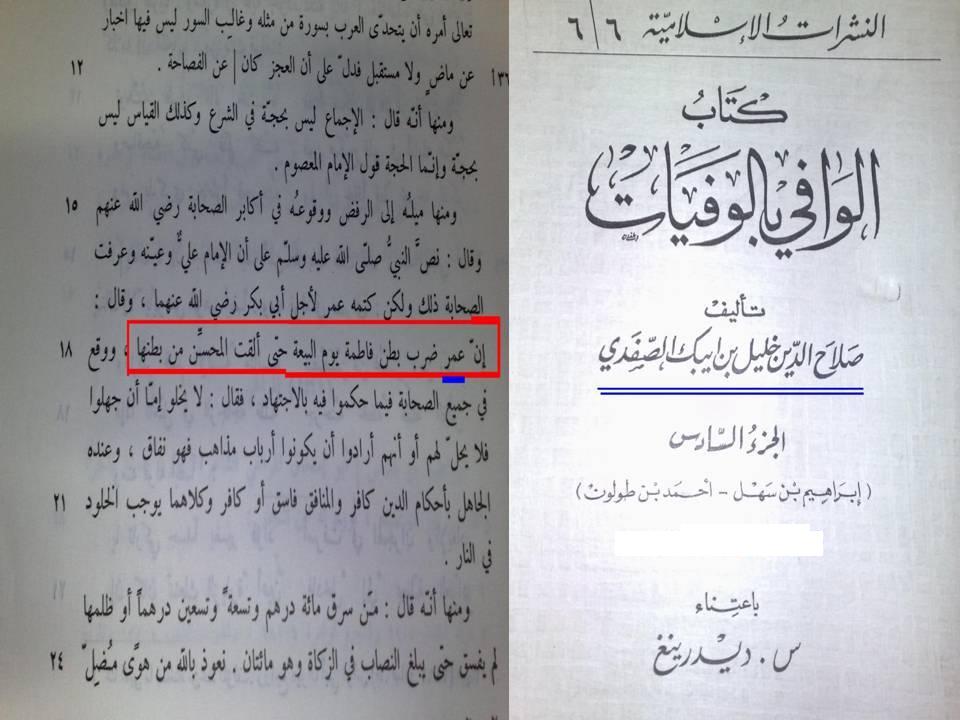 النشرات الإسلامية ٦/٦
كتاب
الوافي بالوفيات
تأليف
صلاح الدين خليل بن ايبك الصفدي
الجزء السادس
( إبراهيم بن سهل - أحمد بن طولون )
باعتناء
س . ديدرينغ
تعالى أمره أن يتحدّى العرب بسورة من مثله وغالِب السور ليس فيها اخبار
عن ماضٍ ولا مستقبل فدلّ على أن العجز كان | عن الفصاحة . ١٢
ومنها أنّه قال : الإجماع ليس بحجّة في الشرع وكذلك القياس ليس
بحجّة وإنّما الحجة قول الإمام المعصوم .
ومنها ميلُه إلى الرفض ووقوعُه في أكابر الصحابة رضي الله عنهم ١٥
وقال : نصَّ النبيُّ صلّى الله عليه وسلّم على أن الإمام عليٌّ وعيّنه وعرفت
الصحابة ذلك ولكن كتمه عمر لأجل أبي بكر رضي الله عنهما ، وقال :
إنّ عمر ضرب بطن فاطمة يوم البيعة حتّى ألقت المحسِّن من بطنها ، ووقع ١٨
في جميع الصحابة فيما حكموا فيه بالاجتهاد ، فقال : لا يخلو إمّا أن جهلوا
فلا يحلّ لهم أو أنهم أرادوا أن يكونوا أرباب مذاهب فهو نفاق ، وعنده
الجاهل بأحكام الدين كافر والمنافق فاسق أو كافر وكلاهما يوجب الخلود ٢١
في النار .
ومنها أنّه قال : مَن سرق مائة درهم وتسعةً وتسعين درهماً أو ظلمها
لم يفسق حتّى يبلغ النصاب في الزكاة وهو مائتان . نعوذ بالله من هوًى مُضِلّ ٢٤